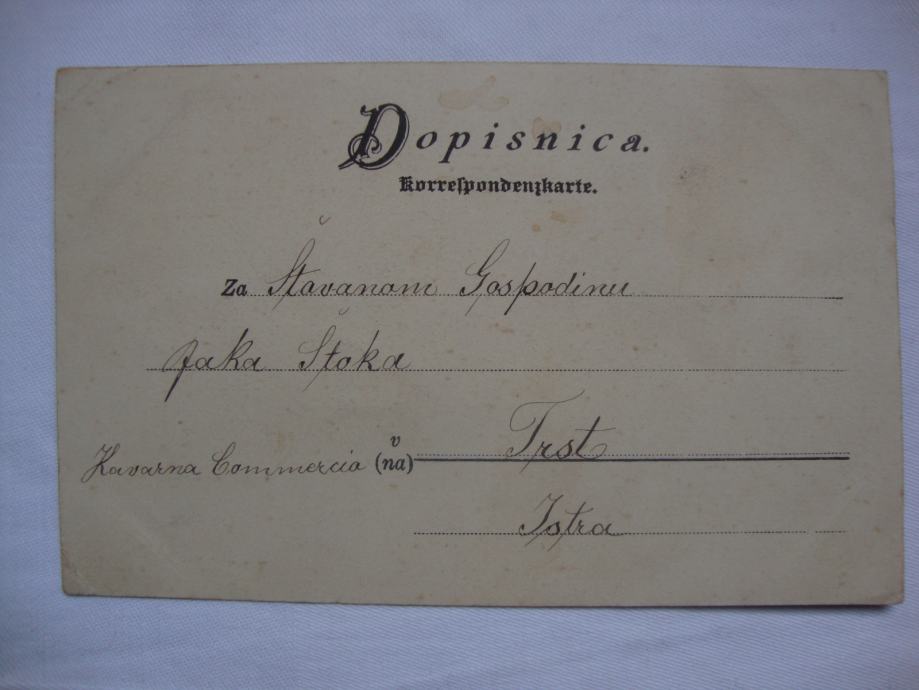 Dopisnica.
Korrespondenzkarte.
Za Štovanom Gospodinu
Jaka Štoka
v Trst
Kavarna Commercio (na)
Istra